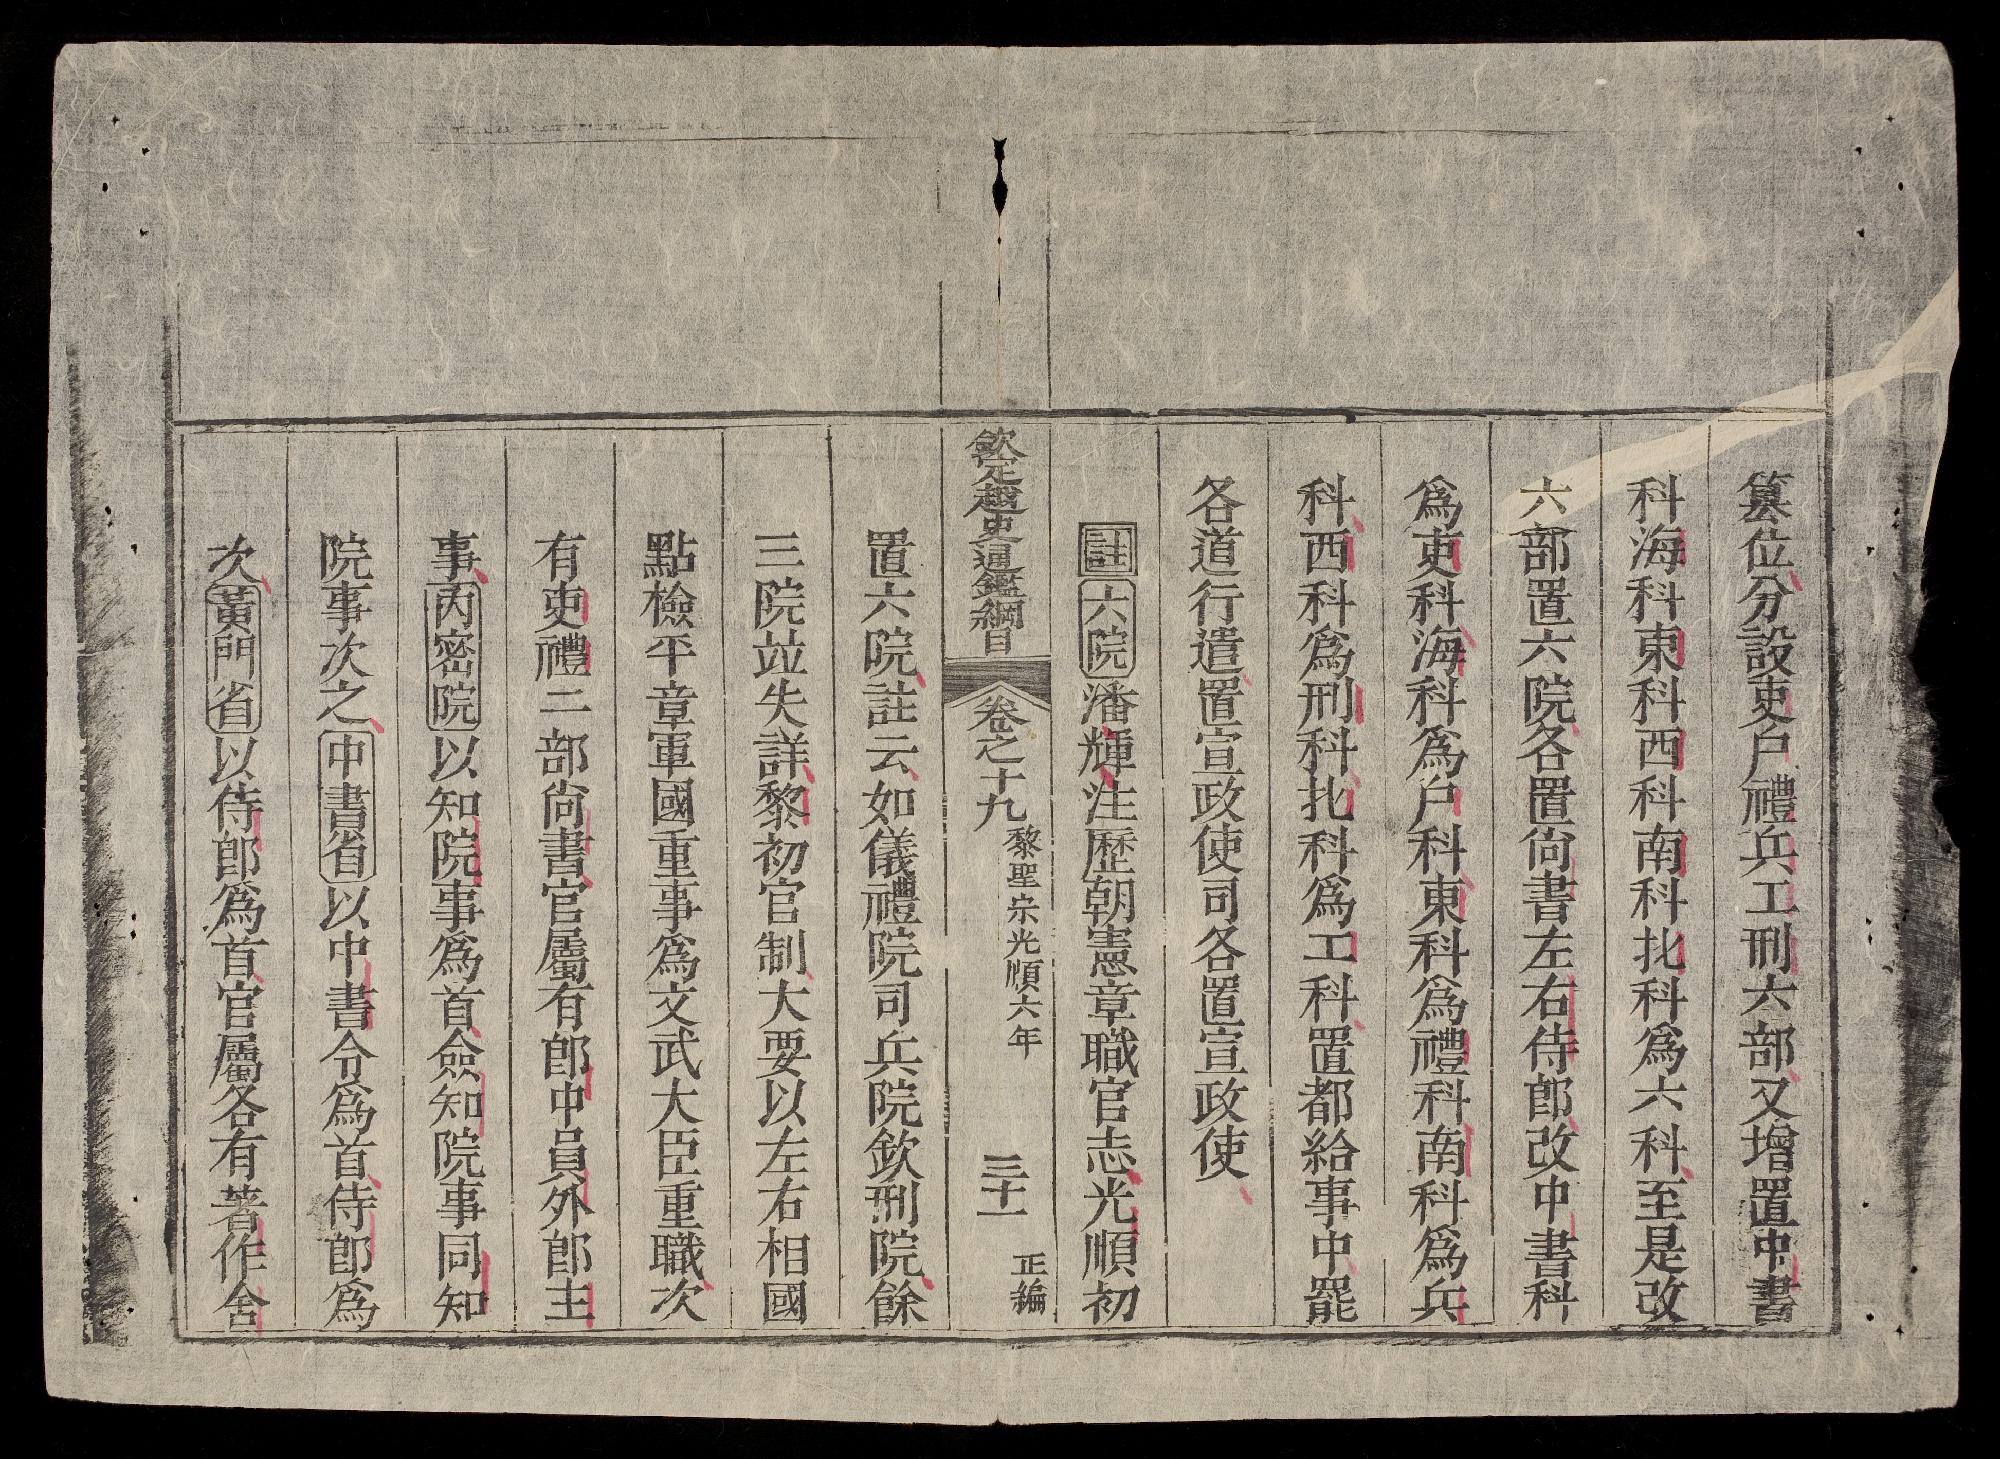 篡位分設吏户禮兵工刑六部又增置中書
科海科東科西科南科北科爲六科至是改
六部置六院各置尚書左右侍郎改中書科
爲吏科海科爲户科東科爲禮科南科爲兵
科西科爲刑科北科爲工科置都給事中罷
各道行遣置宣政使司各置宣政使
註六院潘輝注歷朝憲章職官志光順初
欽定越史通鑑綱目 卷之十九 黎聖宗光順六年 三十一 正編
置六院註云如儀禮院司兵院欽刑院餘
三院竝失詳黎初官制大要以左右相國
點檢平章軍國重事爲文武大臣重職次
有吏禮二部尚書官屬有郎中員外郎主
事丙密院以知院事爲首僉知院事同知
院事次之中書省以中書令爲首侍郎爲
次黃門省以侍郎爲首官屬各有著作舍